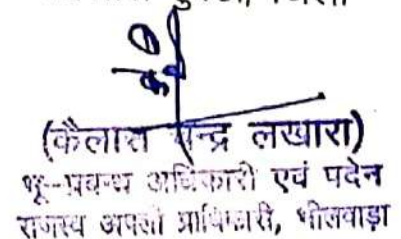 (कैलाश चन्द्र लखारा)
भू-प्रबन्ध अधिकारी एवं पदेन
राजस्व अपली प्राधिकारी, भीलवाड़ा